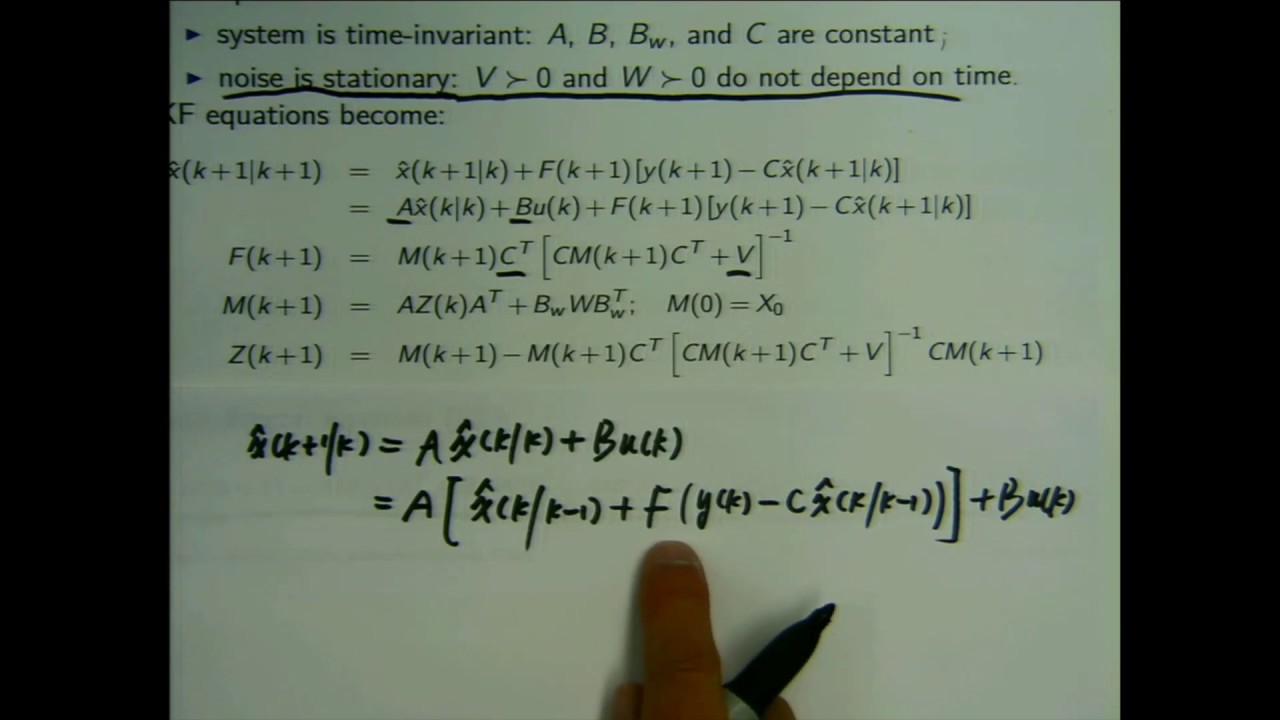 ▶ system is time-invariant: A, B, B_w, and C are constant;
▶ noise is stationary: V ≻ 0 and W ≻ 0 do not depend on time.
KF equations become:
x̂(k+1|k+1) = x̂(k+1|k)+F(k+1)[y(k+1)−Cx̂(k+1|k)]
= Ax̂(k|k)+Bu(k)+F(k+1)[y(k+1)−Cx̂(k+1|k)]
F(k+1) = M(k+1)C^T [CM(k+1)C^T+V]^−1
M(k+1) = AZ(k)A^T+B_wWB_w^T; M(0)=X_0
Z(k+1) = M(k+1)−M(k+1)C^T [CM(k+1)C^T+V]^−1 CM(k+1)
x̂(k+1|k) = Ax̂(k|k)+Bu(k)
= A[x̂(k|k−1)+F(y(k)−Cx̂(k|k−1))]+Bu(k)